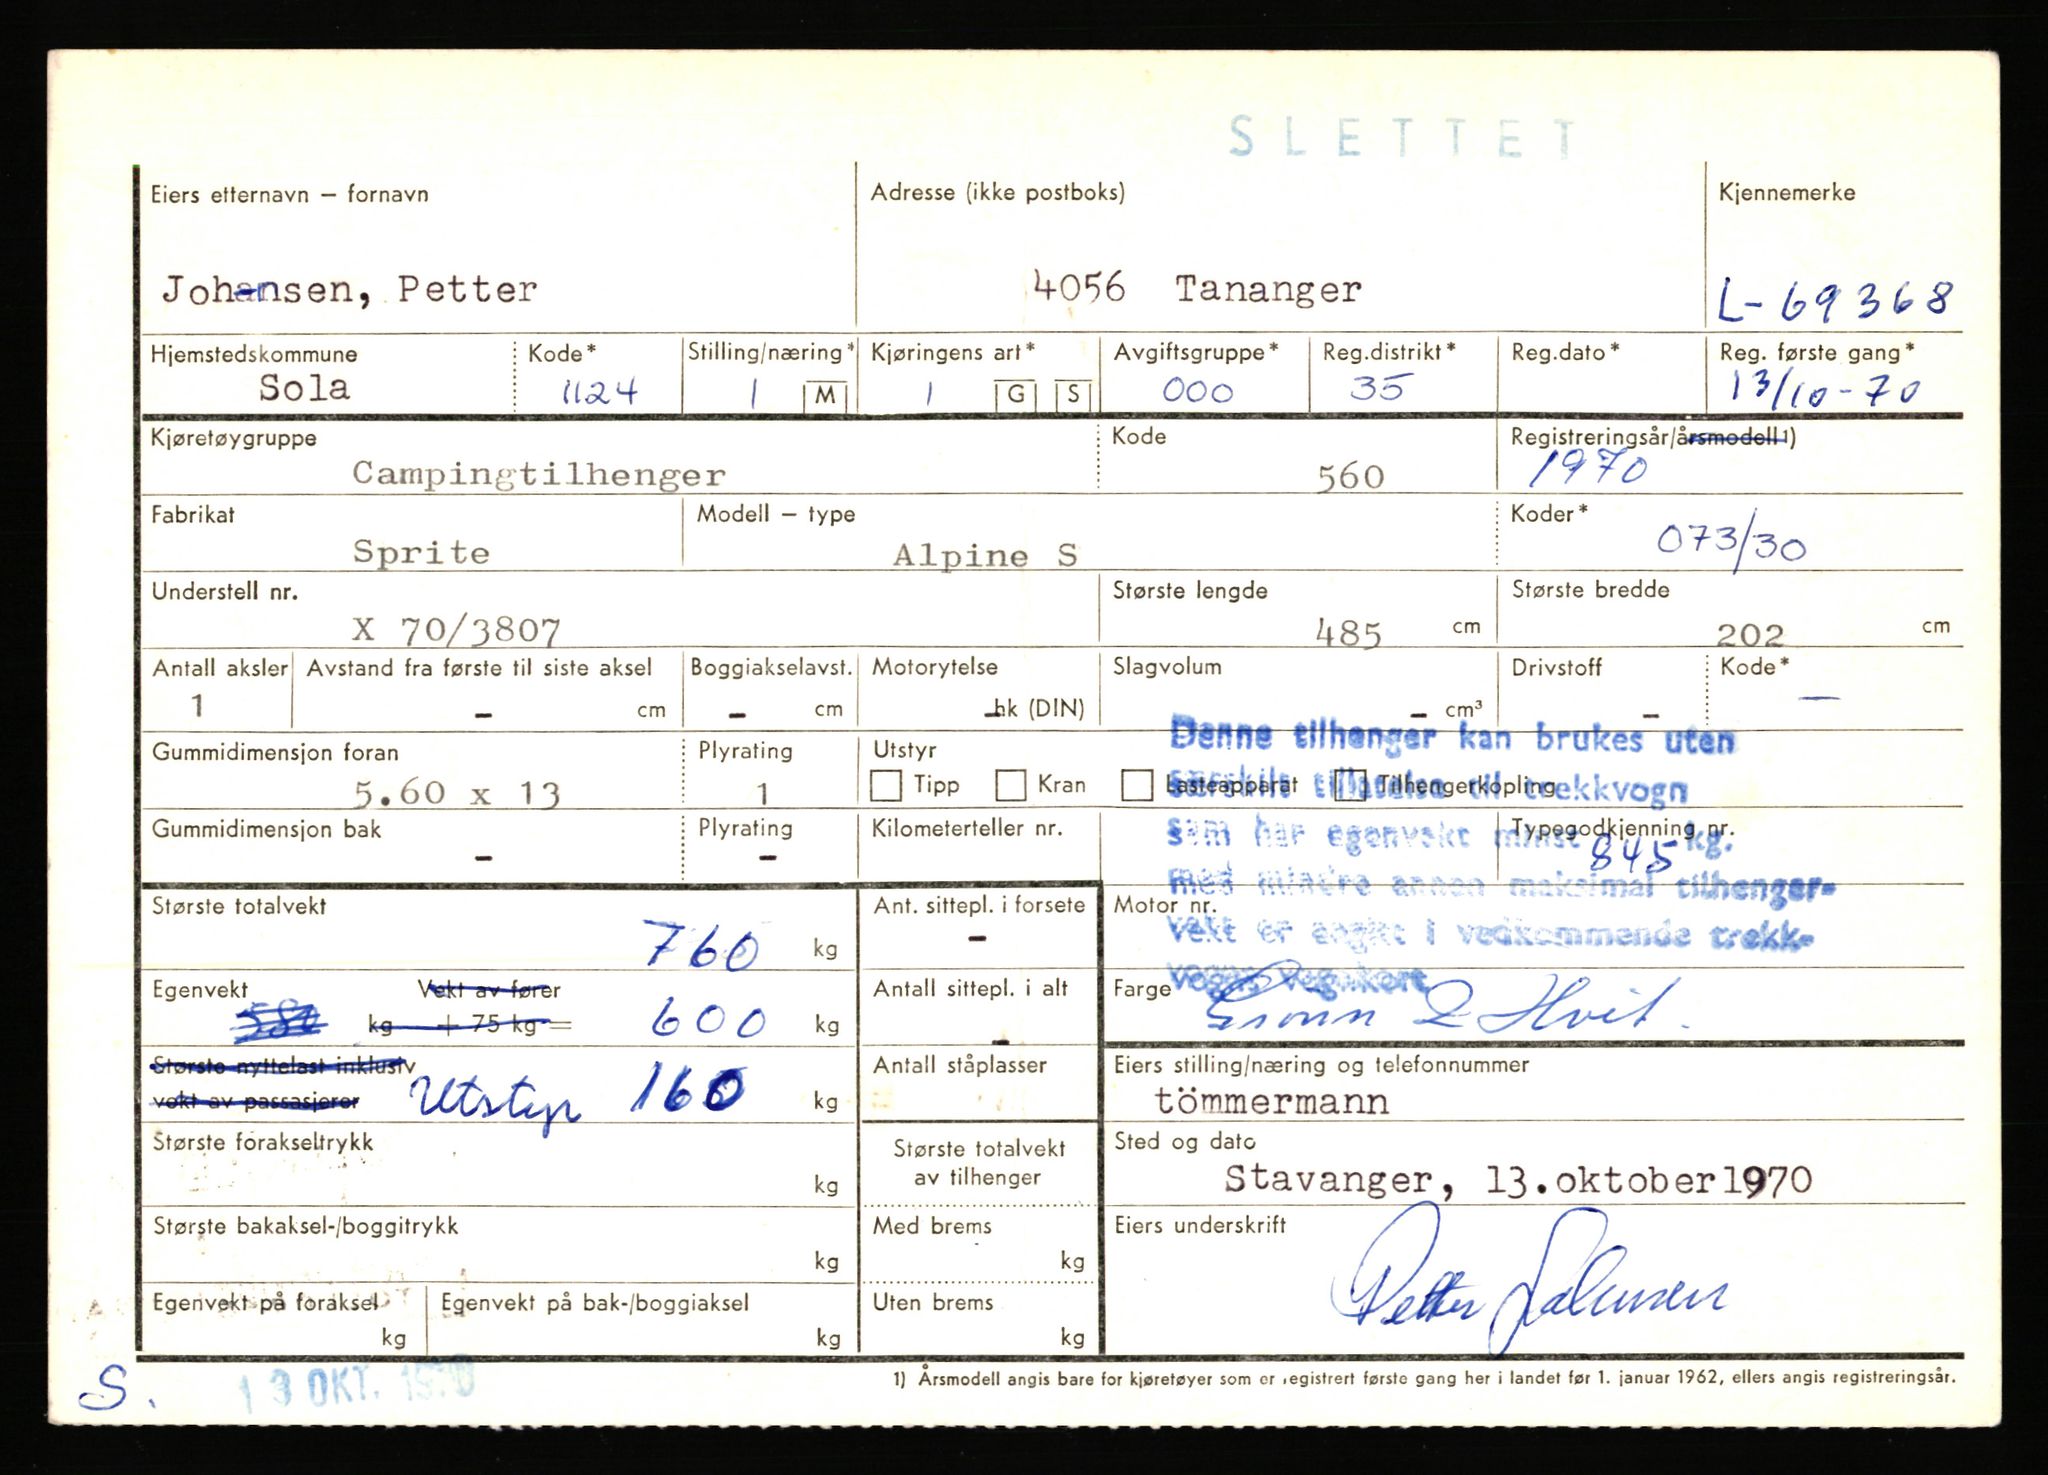 SLETTET
Eiers etternavn – fornavn
Adresse (ikke postboks)
Kjennemerke
Johansen, Petter
4056 Tananger
L-69368
Hjemstedskommune
Kode*
Stilling/næring*
Kjøringens art*
Avgiftsgruppe*
Reg.distrikt*
Reg.dato*
Reg. første gang*
Sola
1124
1 M
1 G S
000
35
13/10-70
Kjøretøygruppe
Kode
Registreringsår/årsmodell 1)
Campingtilhenger
560
1970
Fabrikat
Modell – type
Koder*
Sprite
Alpine S
073/30
Understell nr.
Største lengde
Største bredde
X 70/3807
485 cm
202 cm
Antall aksler
Avstand fra første til siste aksel
Boggiakselavst.
Motorytelse
Slagvolum
Drivstoff
Kode*
1
– cm
– cm
– hk (DIN)
– cm³
–
—
Gummidimensjon foran
Plyrating
Utstyr
5.60 x 13
1
Tipp Kran Lasteapparat Tilhengerkopling
Denne tilhenger kan brukes uten
særskilt tillatelse til trekkvogn
som har egenvekt minst 845 kg.
med mindre annen maksimal tilhenger-
vekt er angitt i vedkommende trekk-
vogns vognkort.
Gummidimensjon bak
Plyrating
Kilometerteller nr.
Typegodkjenning nr.
–
–
Største totalvekt
760 kg
Ant. sittepl. i forsete
–
Motor nr.
Egenvekt
Vekt av fører
580 kg + 75 kg = 600 kg
Antall sittepl. i alt
–
Farge
Grønn & Hvit.
Største nyttelast inklusiv
vekt av passasjerer
Utstyr 160 kg
Antall ståplasser
Eiers stilling/næring og telefonnummer
tömmermann
Største forakseltrykk
kg
Største totalvekt
av tilhenger
Sted og dato
Stavanger, 13.oktober1970
Største bakaksel-/boggitrykk
kg
Med brems
kg
Eiers underskrift
Petter Johansen
Egenvekt på foraksel
kg
Egenvekt på bak-/boggiaksel
kg
Uten brems
kg
S.
13 OKT. 1970
1) Årsmodell angis bare for kjøretøyer som er registrert første gang her i landet før 1. januar 1962, ellers angis registreringsår.